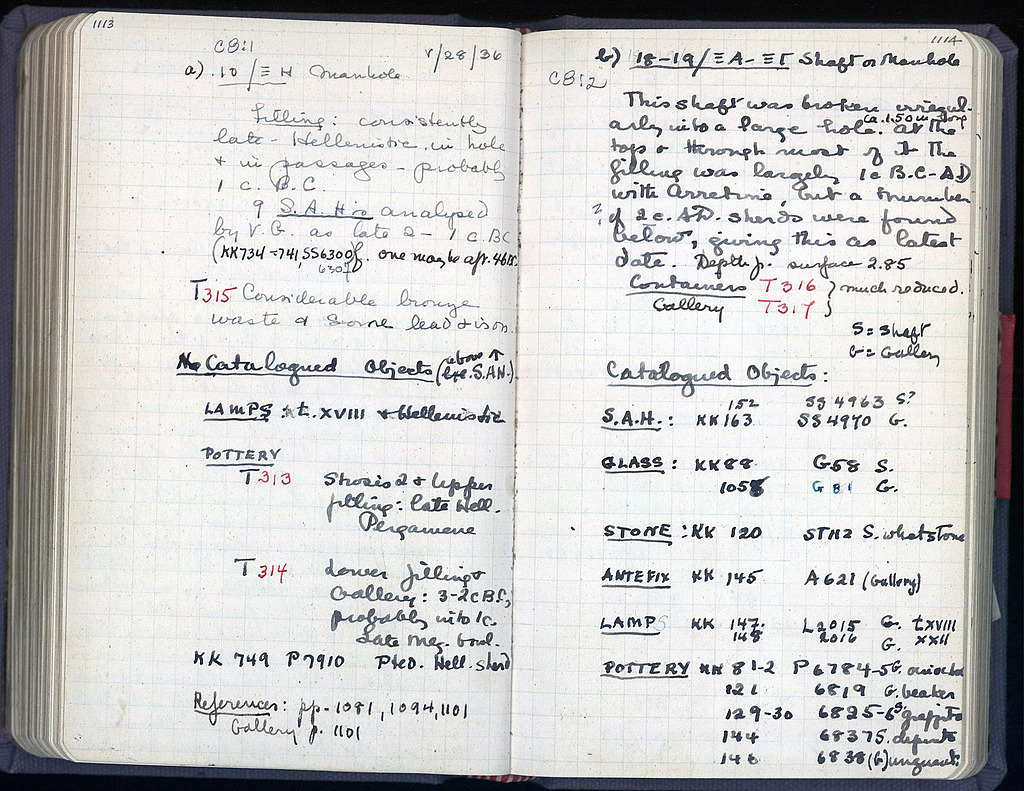 1113
C8:1
V/28/36
a) 10/ΞH Manhole
Filling: consistently
late-Hellenistic in hole
& in passages - probably
1 c. B.C.
9 S.A.H's analysed
by V.G. as late 2-1 c. BC
(KK734-741, SS6300f. one may be
6307
T315 Considerable bronze
waste & some lead & iron
No Catalogued Objects (above ↑
S.A.H.)
LAMPS: t. XVIII & Hellenistic
POTTERY
T313 Strosis 2 & Upper
filling: late Hell.
Pergamene
T314 Lower filling &
Gallery: 3-2 c BC,
probably into 1c.
Late Meg. bowl.
KK 749 P7910 Pted. Hell. sherd
References: pp. 1081, 1094, 1101
Gallery p. 1101
1114
b) 18-19/ΞA-ΞΓ Shaft or Manhole
C8:2
This shaft was broken irregul-
ca. 1.50 m. long
arly into a large hole. At the
top & through most of it the
filling was largely 1c B.C-AD
with Arretine, but a number
? of 2 c. AD. sherds were found
below, giving this as latest
date. Depth fr. surface 2.85
Containers T316 } much reduced.
Gallery T317 }
S = Shaft
G = Gallery
Catalogued Objects:
152 SS 4963 S?
S.A.H.: KK 163 SS 4970 G.
GLASS: KK 88 G58 S.
105 G 81 G.
STONE: KK 120 ST112 S. whetstone
ANTEFIX KK 145 A 621 (Gallery)
LAMPS KK 147. L2015 G. t.XVIII
148 2016 G. XXII
POTTERY KK 81-2 P 6784-5 G.
121 6819 G. beaker
129-30 6825-6 S. graffito
144 6837 S. dipinto
146 6838 (G) unguent.